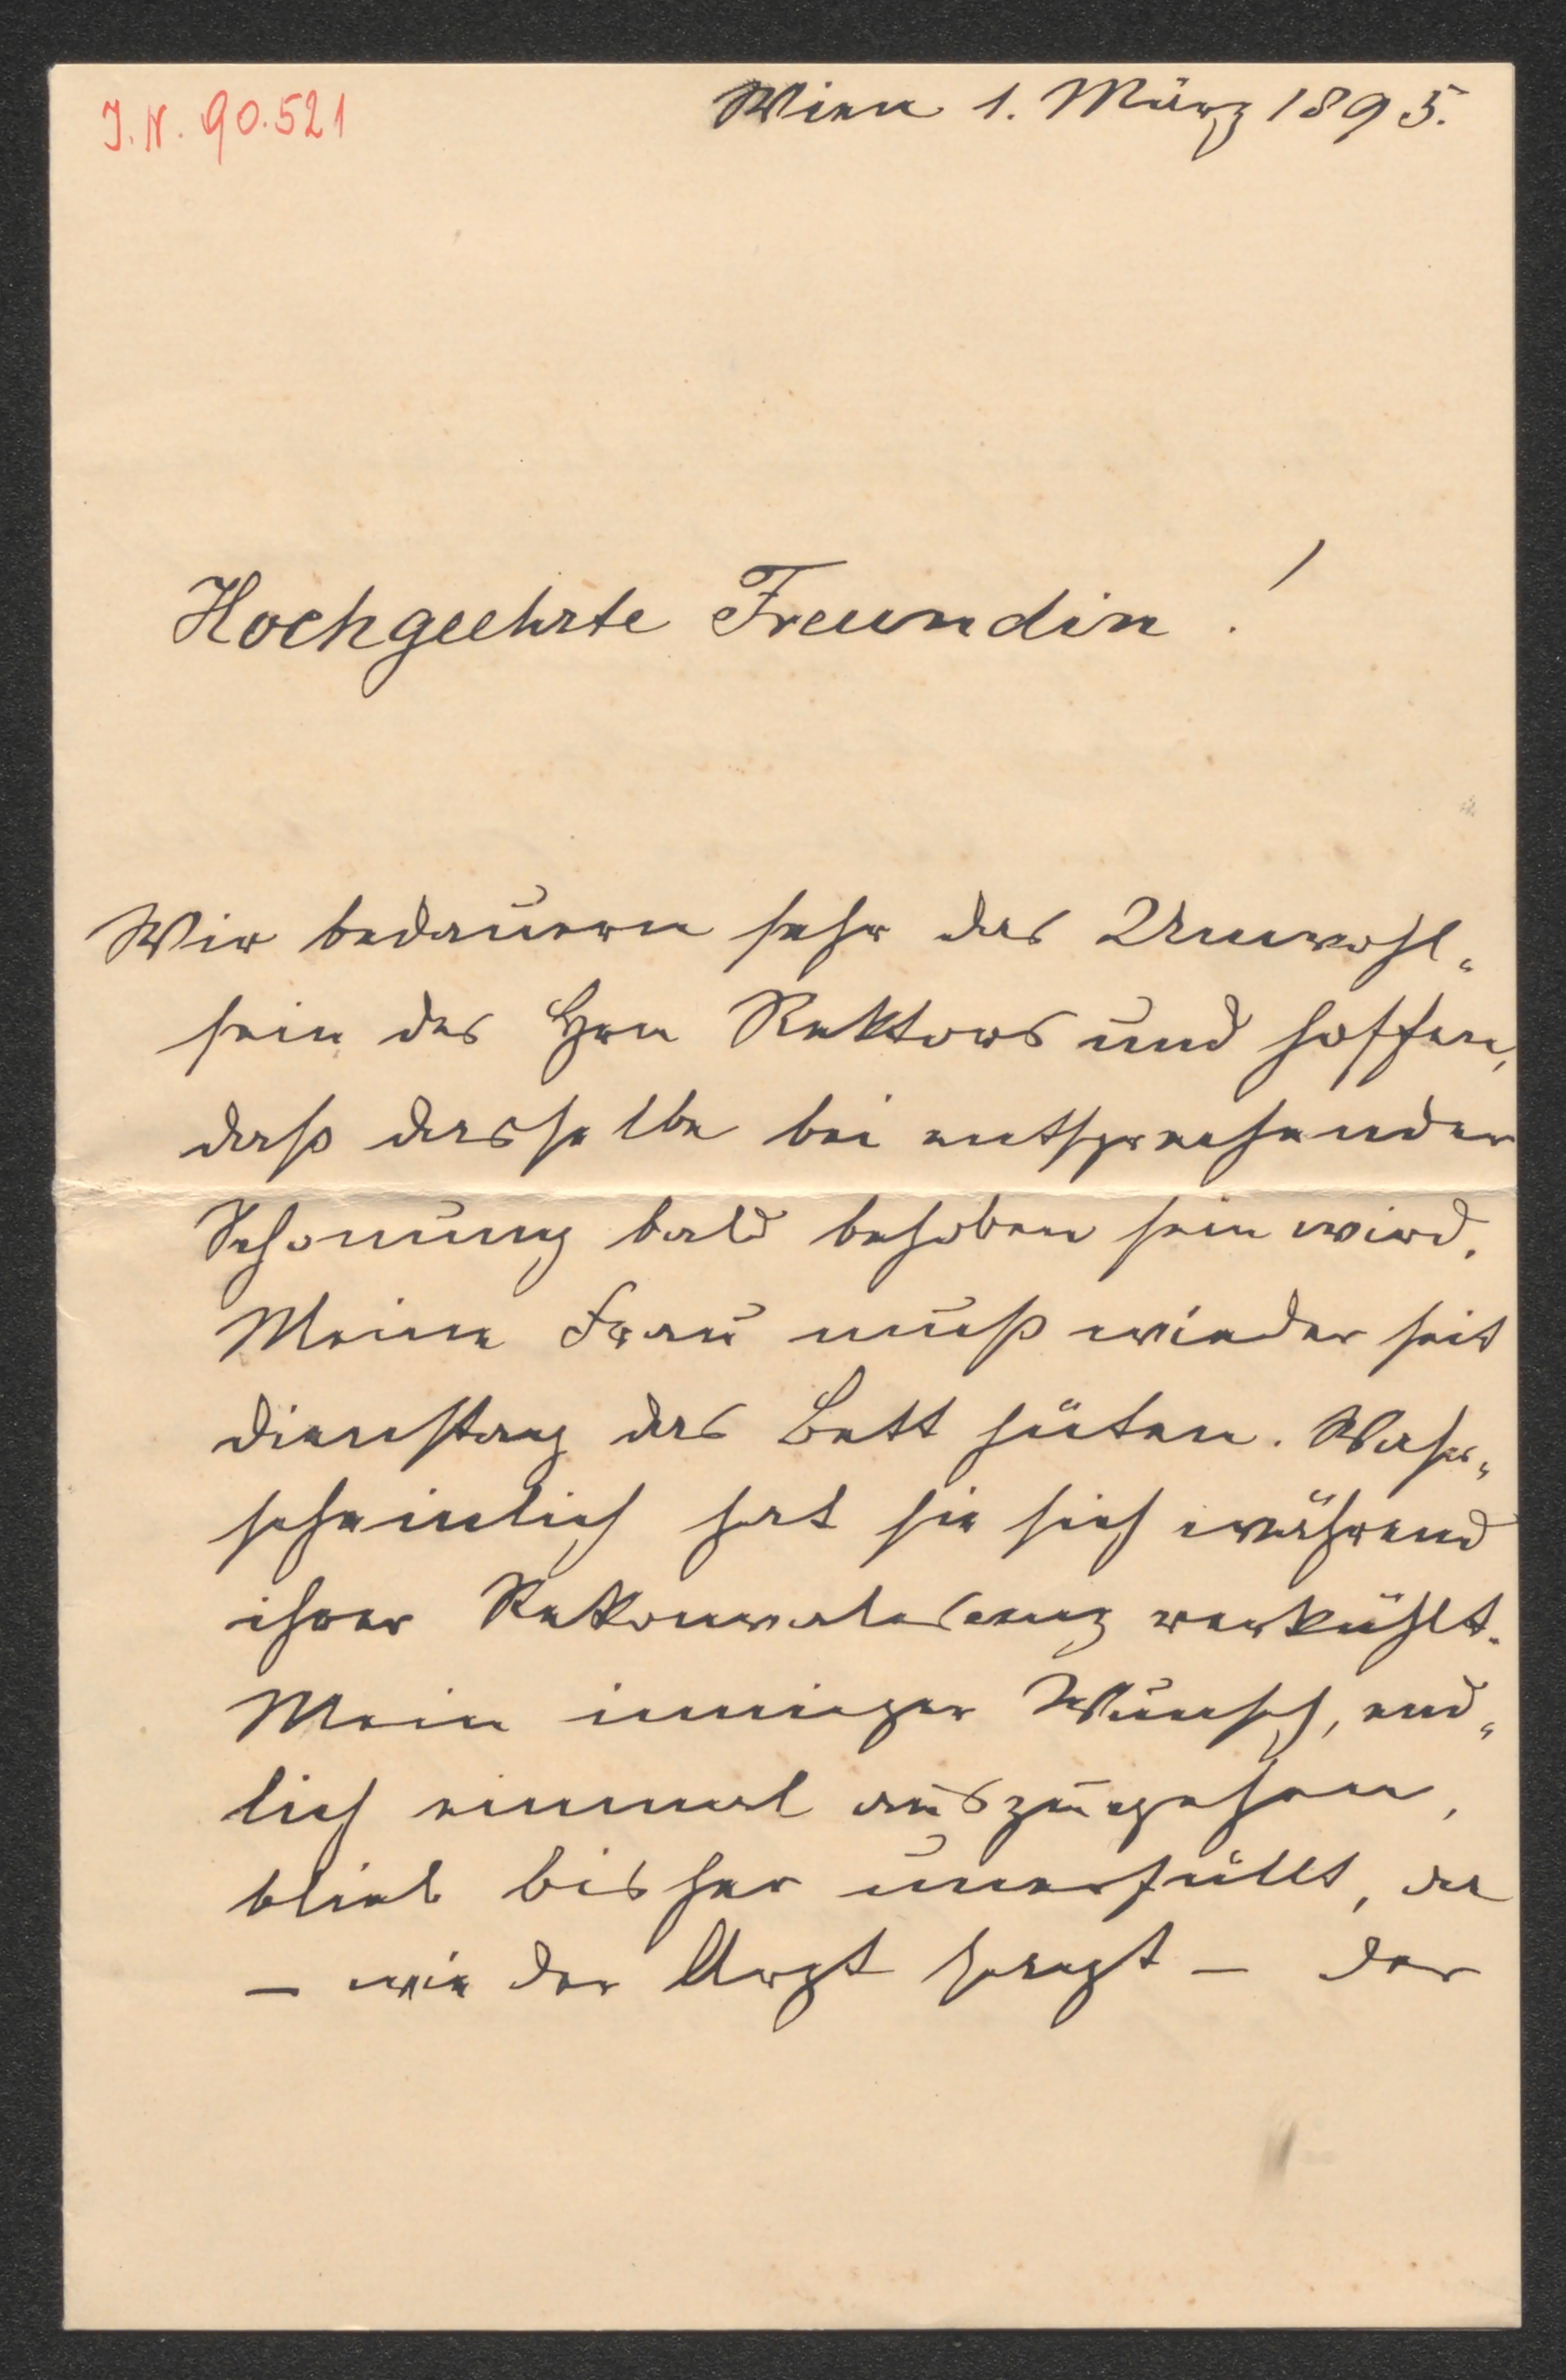 J. N. 90.521
Wien 1. März 1895.
Hochgeehrte Freundin!
Wir bedauern sehr das Unwohl„
sein des Hrn Rektors und hoffen,
daß dasselbe bei entsprechender
Schonung bald behoben sein wird.
Meine Frau muß wieder seit
Dienstag das Bett hüten. Wahr„
scheinlich hat sie sich während
ihrer Rekonvalescenz verkühlt.
Mein inniger Wunsch, end„
lich einmal auszugehen,
blieb bisher unerfüllt, da
– wie der Arzt sagt – der